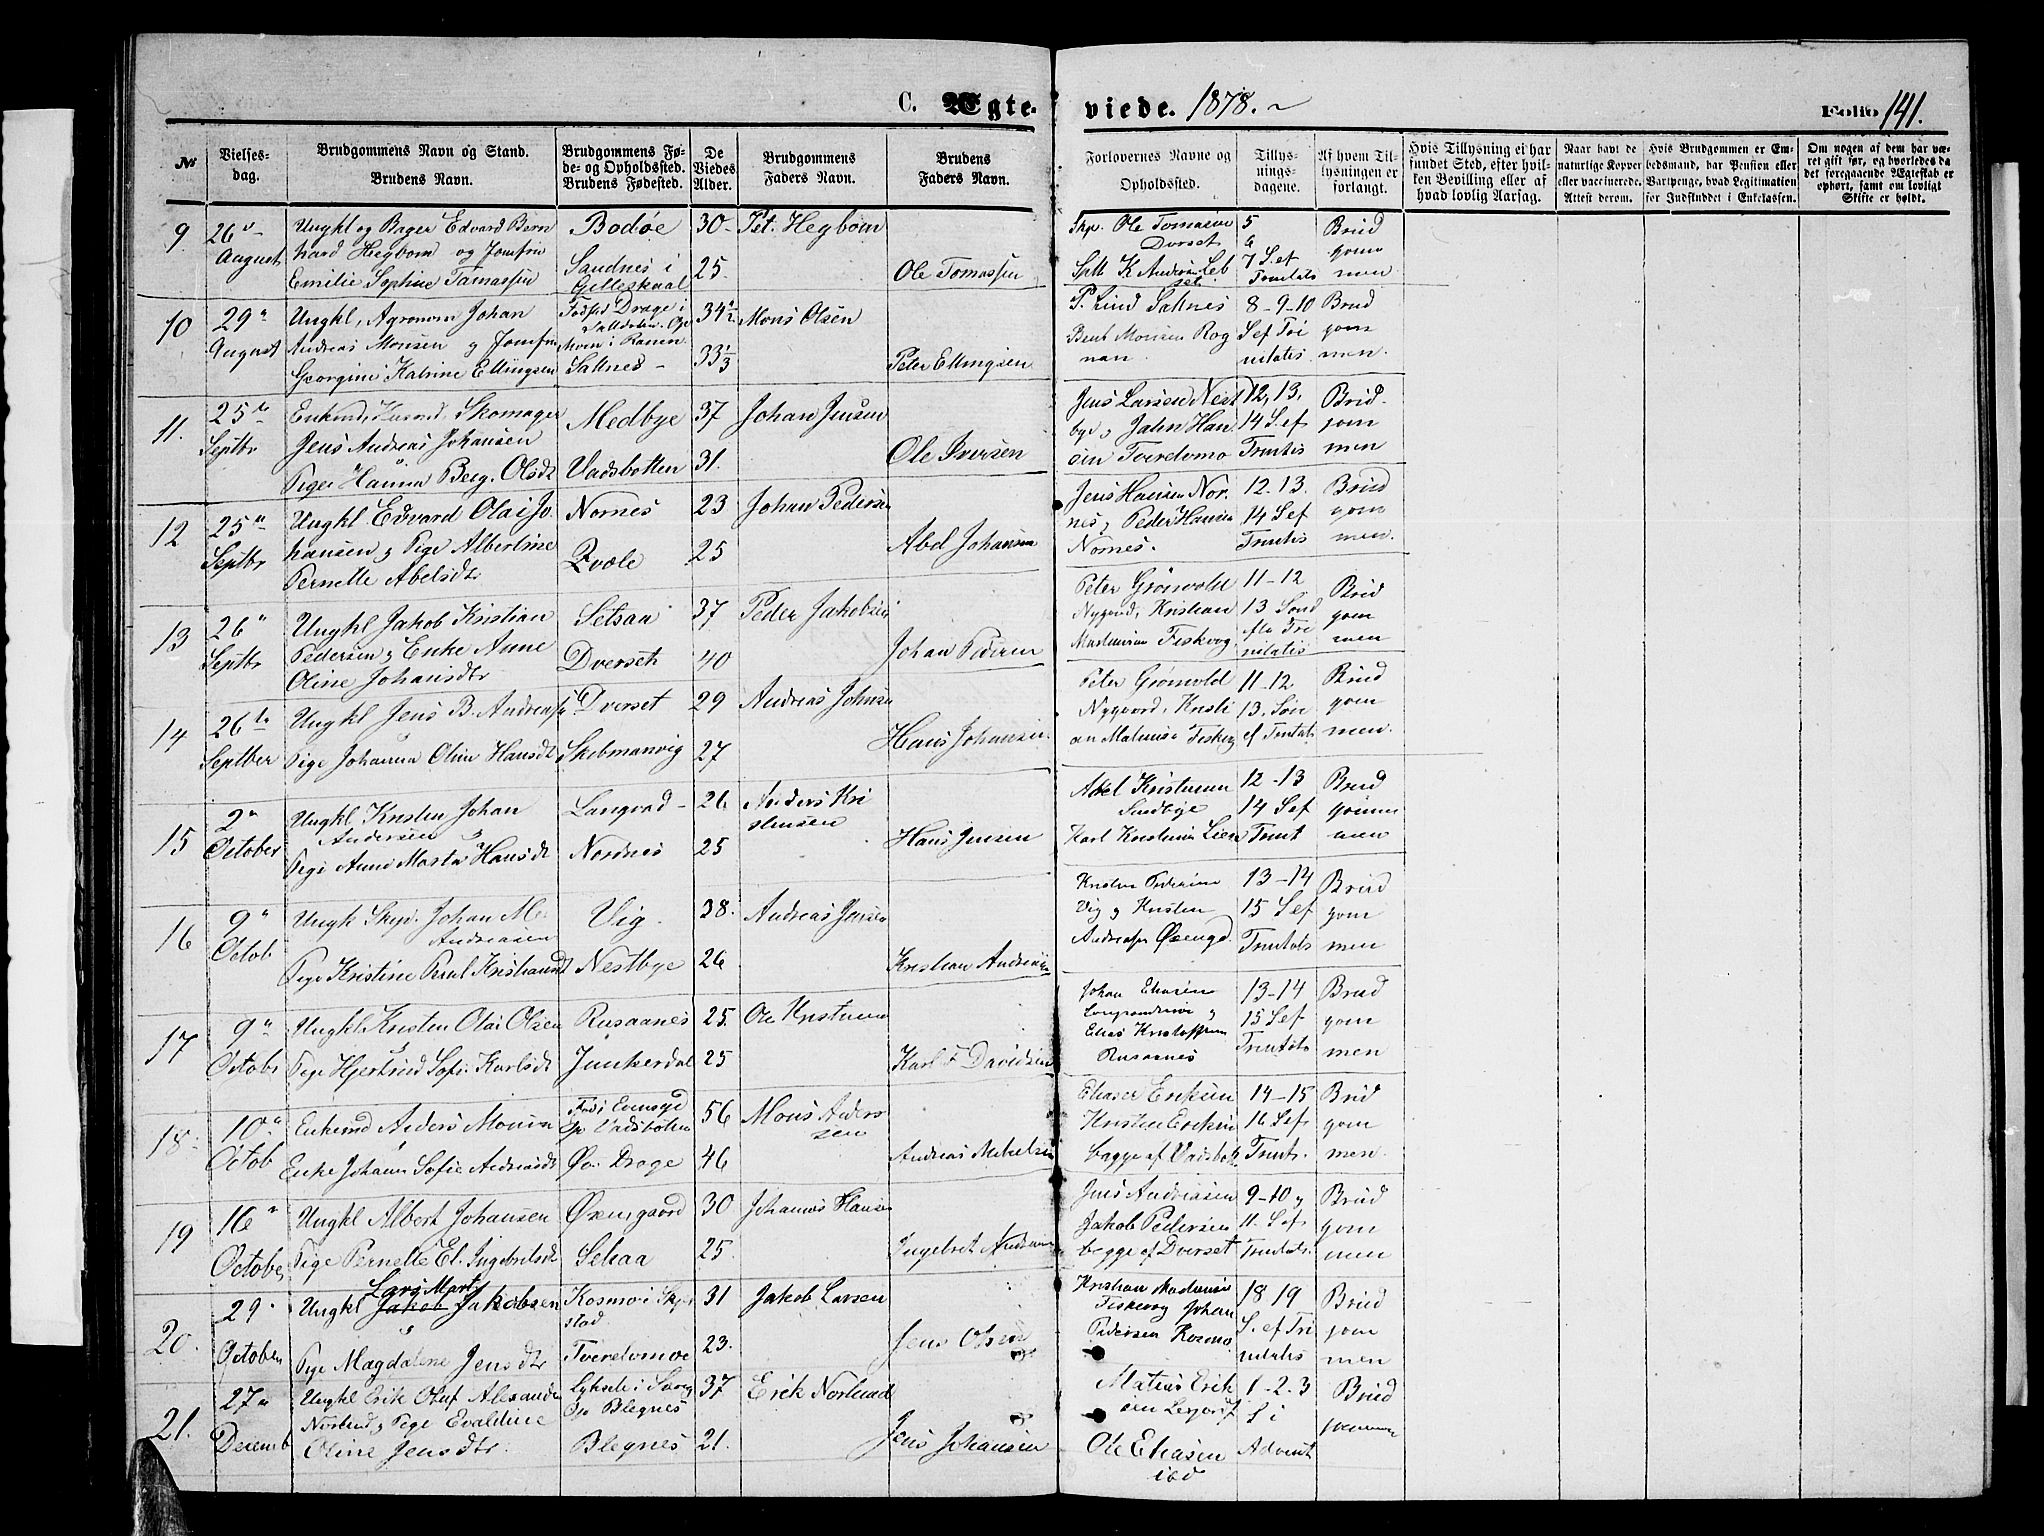 C. Ægteviede. 1878. ~
Folio 141.
No
Vielsesdag.
Brudgommens Navn og Stand.
Brudens Navn.
Brudgommens Føde- og Opholdssted.
Brudens Fødested.
De Viedes Alder.
Brudgommens Faders Navn.
Brudens Faders Navn.
Forlovernes Navne og Opholdssted.
Tillysningsdagene.
Af hvem Tillysningen er forlangt.
Hvis Tillysning ei har fundet Sted, efter hvilken Bevilling eller af hvad lovlig Aarsag.
Naar havt de naturlige Kopper eller vaccinerede. Attest derom.
Hvis Brudgommen er Embedsmand, har Pension eller Vartpenge, hvad Legitimation for Indskuddet i Enkekassen.
Om nogen af dem har været gift før, og hvorledes da det foregaaende Ægteskab er ophørt, samt om lovligt Skifte er holdt.
9
26
August
Ungkl og Bager Edvard Bern
hard Hegbom og Jomfru
Emilie Sophie Tomassen
Bodøe
Sandnes i
Gilleskaal
30
25
Pet. Hegbom
Ole Tomassen
Skp. Ole Tomasen
Dverset
5
6
7 S. ef
Trinitats
Brud
gom
men
10
29
August
Ungkl, Agronom Johan
Andreas Monsen og Jomfru
Georgine Katrine Ellingsen
Saltnes
34½
33⅓
Mons Olsen
Peter Ellingsen
P. Lind Saltnes
Bent Monsen Rog
nan.
8-9-10
S ef Tri
nitatis
Brud
gom
men.
11.
25
Septbr
Enkemd, Husmd, Skomager
Jens Andreas Johansen
Pige Hanna Berg. Olsdt
Medbye
Vadsbotten
37
31.
Johan Jensen
Ole Iversen
Jens Larsen Nest
bye, Jahn Han
sen Tverelvmo
12, 13,
14 S. ef
Trintis
Brud
gom
men
12
25
Septbr
Ungkl Edvard Olai Jo
hansen, Pige Albertine
Pernelle Abelsdtr
Nornes
Qvæle
23
25
Johan Pedersen
Abel Johansen
Jens Hansen Nor
nes, Peder Hansen
Nornes.
12. 13.
14 S ef
Trintis
Brud
gom
men.
13
26
Septbr
Ungkl Jakob Kristian
Pedersen, Enke Anne
Oline Johansdtr
Setsaa
Dverseth
37
40
Peder Jakobsen
Johan Pedersen
Peter Grönvold
Nygaard, Kristian
Mathisen Fiskvog
11-12
13 Sönd
efter Tri
nitatis
Brud
gom
men
14
26
Septber
Ungkl Jens B. Andreas
Pige Johanna Oline Hansdt
Dverset
Skebmanvig
29
27
Andreas Johnsen
Hans Johansen
Peter Grönvold
Nygaard, Kristi
an Fiskvog
11-12
13. Søn
ef Trintats
Brud
gom
men.
15
2
October
Ungkl Kristen Johan
Andersen
Pige Anne Marta Hansdt
Langvad
Nordnes
26
25
Anders Kri
stensen
Hans Jensen
12-13
14 S ef
Trint
Brud
gom
men
16
9
Octob
Ungk Johan
Andreasen
Pige Kristine Kristiansdt
Vig
Nestbye
38.
26
Andreas Jensen
Kristian Andreasen
Kristen Pedersen
Vig og Kristen
Andreasen Øxengd.
13-14
15 S ef
Trintats
Brud
gom
men
17
9
Octobr
Ungkl Kristen Olai Olsen
Pige Hjertrud Sofie Karlsdt
Rusaanes
Junkerdal
25.
25
Ole Kristensen
Karl F Davidsen
Johan Eliasen
Elias Kristoffersen
Rusaanes
13-14
15 S ef
Trintats
Brud
gom
men
18.
10.
Octob
Enkemd Anders Monsen
Enke Johanna Sofie Andreasdt
Op Vadsbotten
Øv. Drage
56
46
Mons Anders
sen
Andreas Mikelsen
Eliaser Eriksen
Kristen Eriksen
begge af Vadsbot
14-15
16 S ef
Trints.
Brud
gom
men.
19
16
October
Ungkl Albert Johansen
Pige Pernelle El. Ingebritsdt
Øxengaard
Setsaa
30
25.
Johannes Hansen
Ingebret Andersen
Jens Andreasen
Jakob Pedersen
begge af Dverset
9-10 og
11. S ef
Trintats.
Brud
gom
men
20.
29
October
Lars Marti
Ungkl Jakob Jakobsen
Pige Magdalene Jensdtr
Kosmo i Skjer
stad
Tverelvmoe
31
23.
Jakob Larsen
Jens Olsen
Kristian Mathisen
Fiskevog Johan
Pedersen Kosmo
18 19
S. ef Tri
nitatis
Brud
gom
men
21.
27
Decemb
Ungkl Erik Oluf Alexander
Norlund, Pige Evaldine
Oline Jensdtr.
Op Blegnes
Blegnes
37
21.
Erik Norlund
Jens Johansen
Matias Erik
sen
Ole Eliasen
ibd
1-2.3
S i
Advent
Brud
gommen